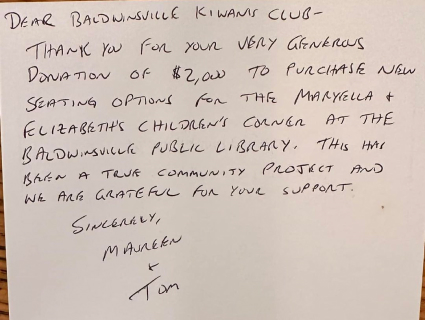 DEAR BALDWINSVILLE KIWANIS CLUB-
THANK YOU FOR YOUR VERY GENEROUS
DONATION OF $2,000 TO PURCHASE NEW
SEATING OPTIONS FOR THE MARYELLA +
ELIZABETH'S CHILDREN'S CORNER AT THE
BALDWINSVILLE PUBLIC LIBRARY. THIS HAS
BEEN A TRUE COMMUNITY PROJECT AND
WE ARE GRATEFUL FOR YOUR SUPPORT.
SINCERELY,
MAUREEN
+
TOM